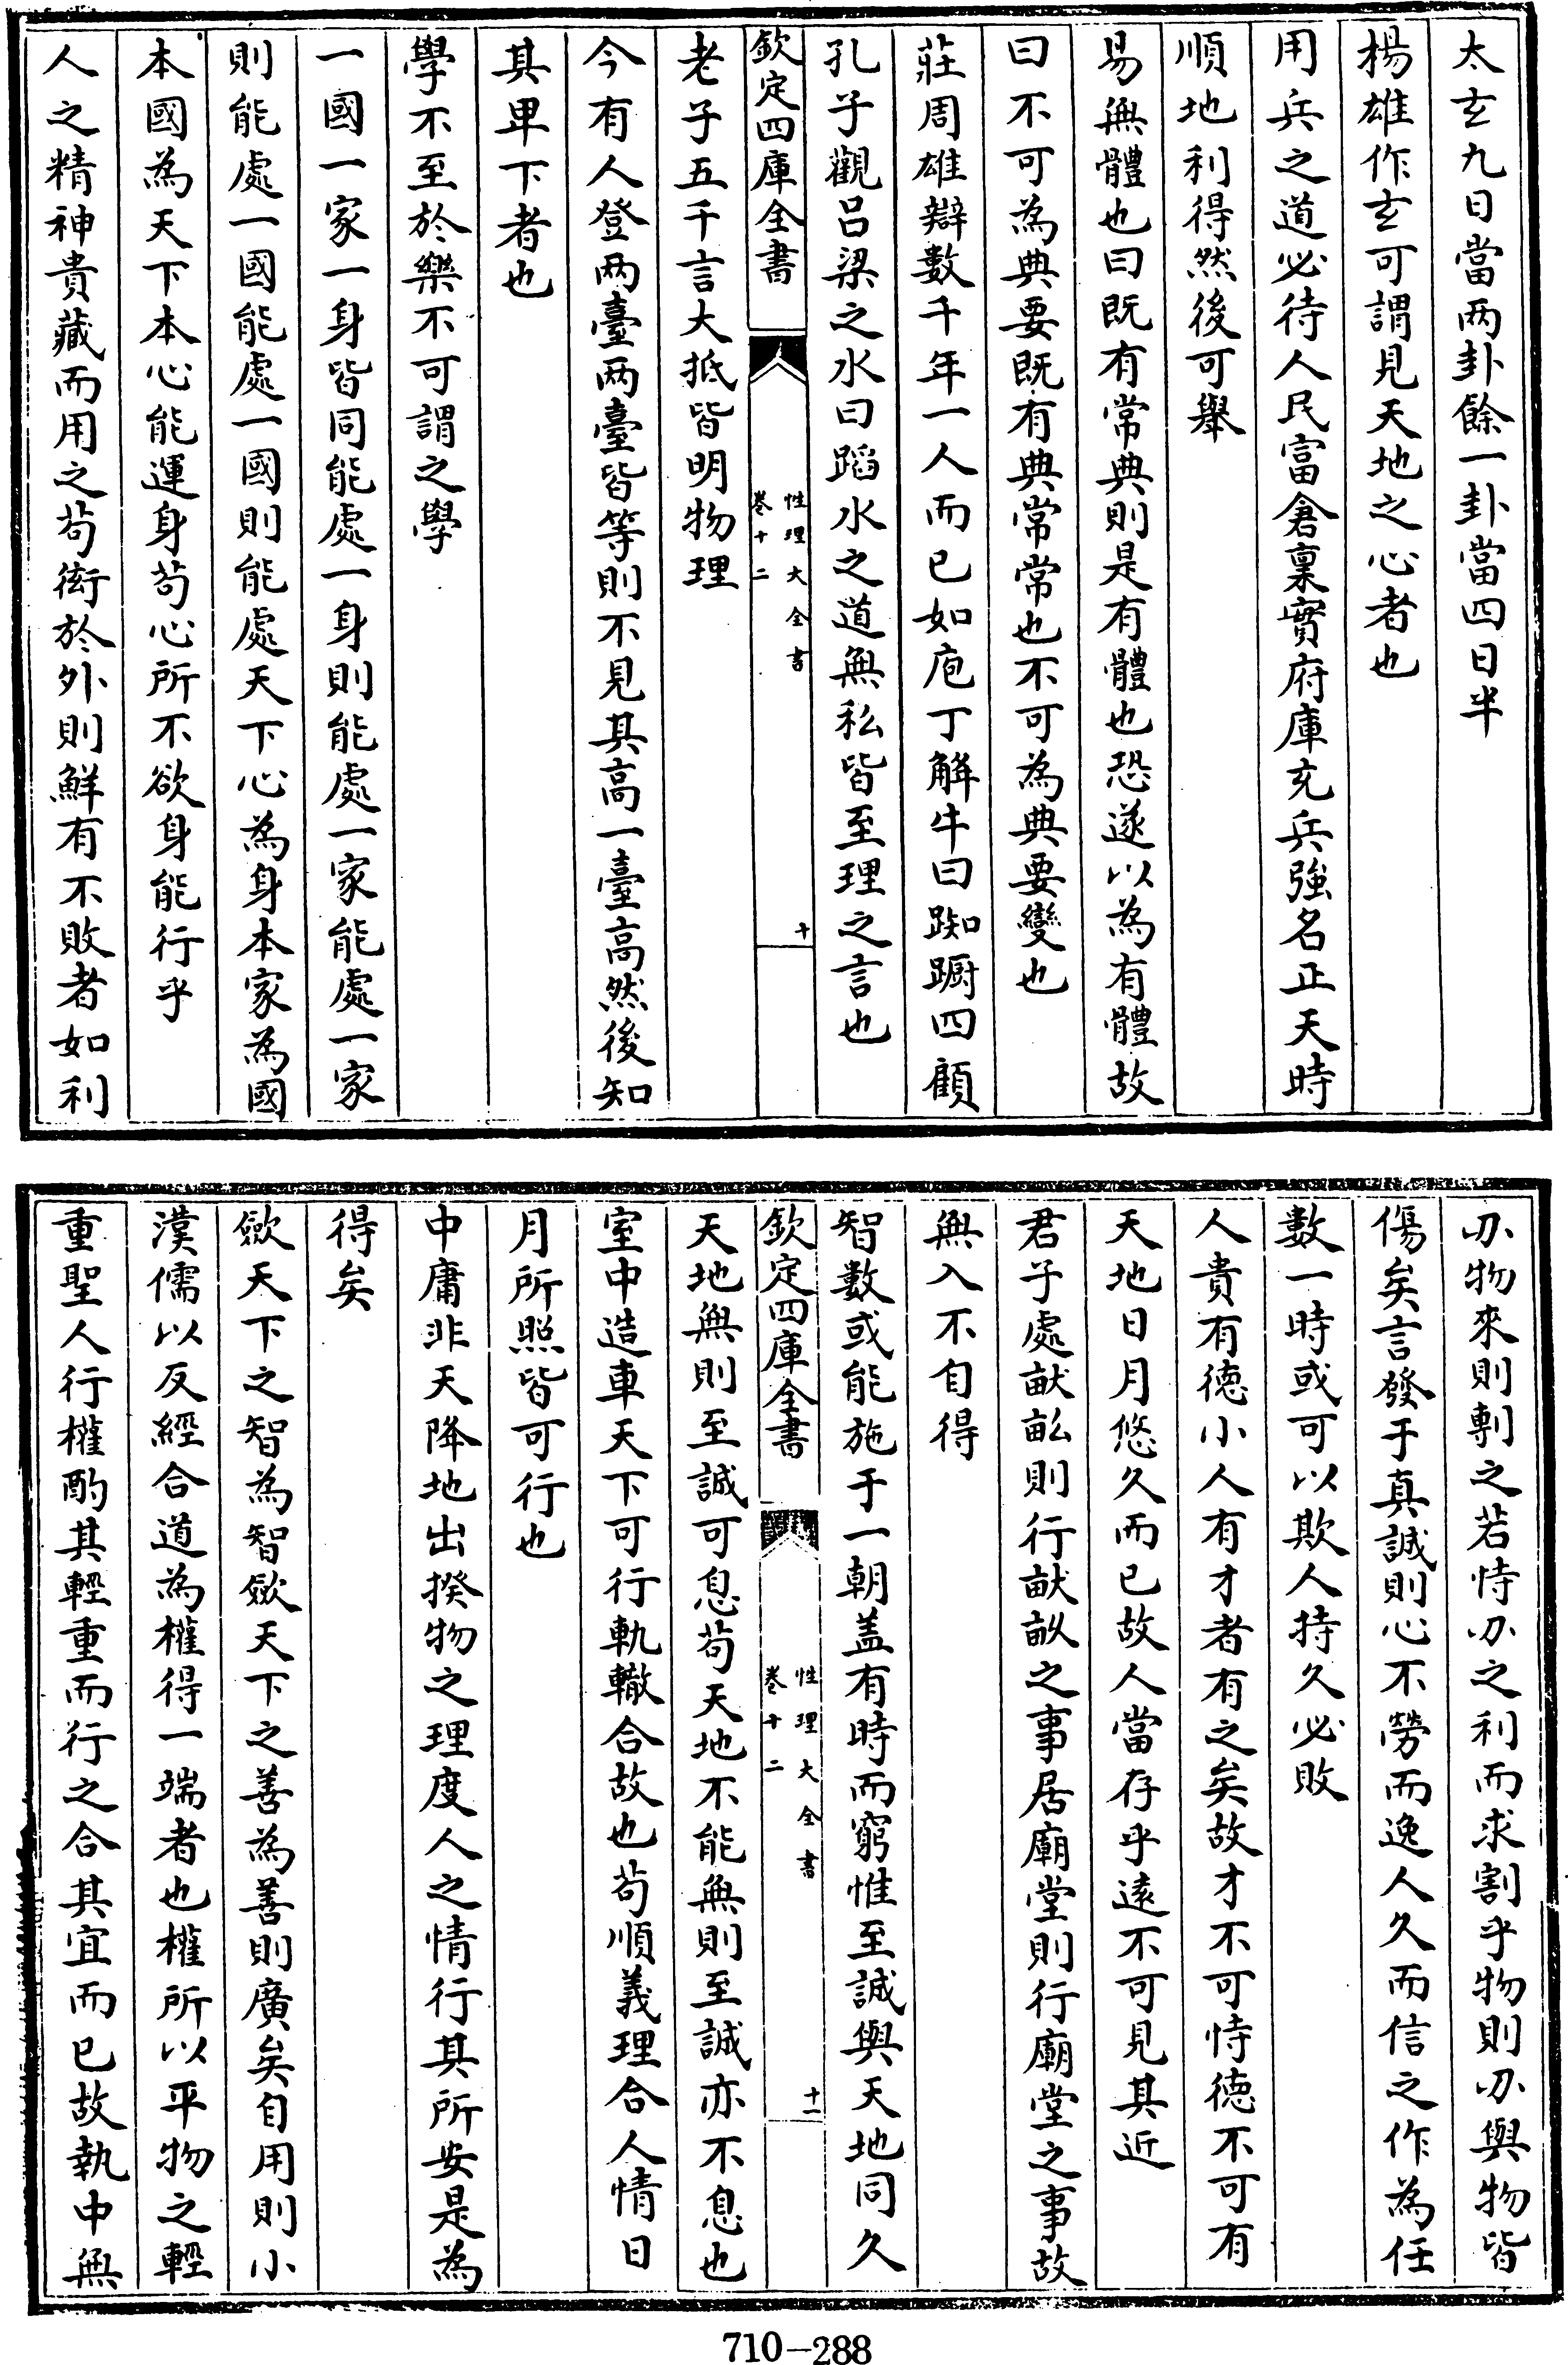 太𤣥九日當两卦餘一卦當四日半
楊雄作𤣥可謂見天地之心者也
用兵之道必待人民富倉稟實府庫充兵強名正天時
順地利得然後可舉
易無體也曰既有常典則是有體也恐遂以為有體故
曰不可為典要既有典常常也不可為典要變也
莊周雄辯數千年一人而已如庖丁解牛曰踟蹰四顧
孔子觀吕梁之水曰蹈水之道無私皆至理之言也
欽定四庫全書
性理大全書
卷十二
十
老子五千言大抵皆明物理
今有人登两臺两臺皆等則不見其高一臺高然後知
其卑下者也
學不至於樂不可謂之學
一國一家一身皆同能處一身則能處一家能處一家
則能處一國能處一國則能處天下心為身本家為國
本國為天下本心能運身茍心所不欲身能行乎
人之精神貴藏而用之茍衒於外則鮮有不敗者如利
刅物來則剸之若恃刅之利而求割乎物則刅與物皆
傷矣言發于真誠則心不勞而逸人久而信之作為任
數一時或可以欺人持久必敗
人貴有徳小人有才者有之矣故才不可恃徳不可有
天地日月悠久而已故人當存乎逺不可見其近
君子處畎畝則行畎畝之事居廟堂則行廟堂之事故
無入不自得
智數或能施于一朝盖有時而窮惟至誠與天地同久
欽定四庫全書
性理大全書
卷十二
十一
天地無則至誠可息茍天地不能無則至誠亦不息也
室中造車天下可行軌轍合故也茍順義理合人情日
月所照皆可行也
中庸非天降地出揆物之理度人之情行其所安是為
得矣
歛天下之智為智歛天下之善為善則廣矣自用則小
漢儒以反經合道為權得一端者也權所以平物之輕
重聖人行權酌其輕重而行之合其宜而已故執中無
710—288